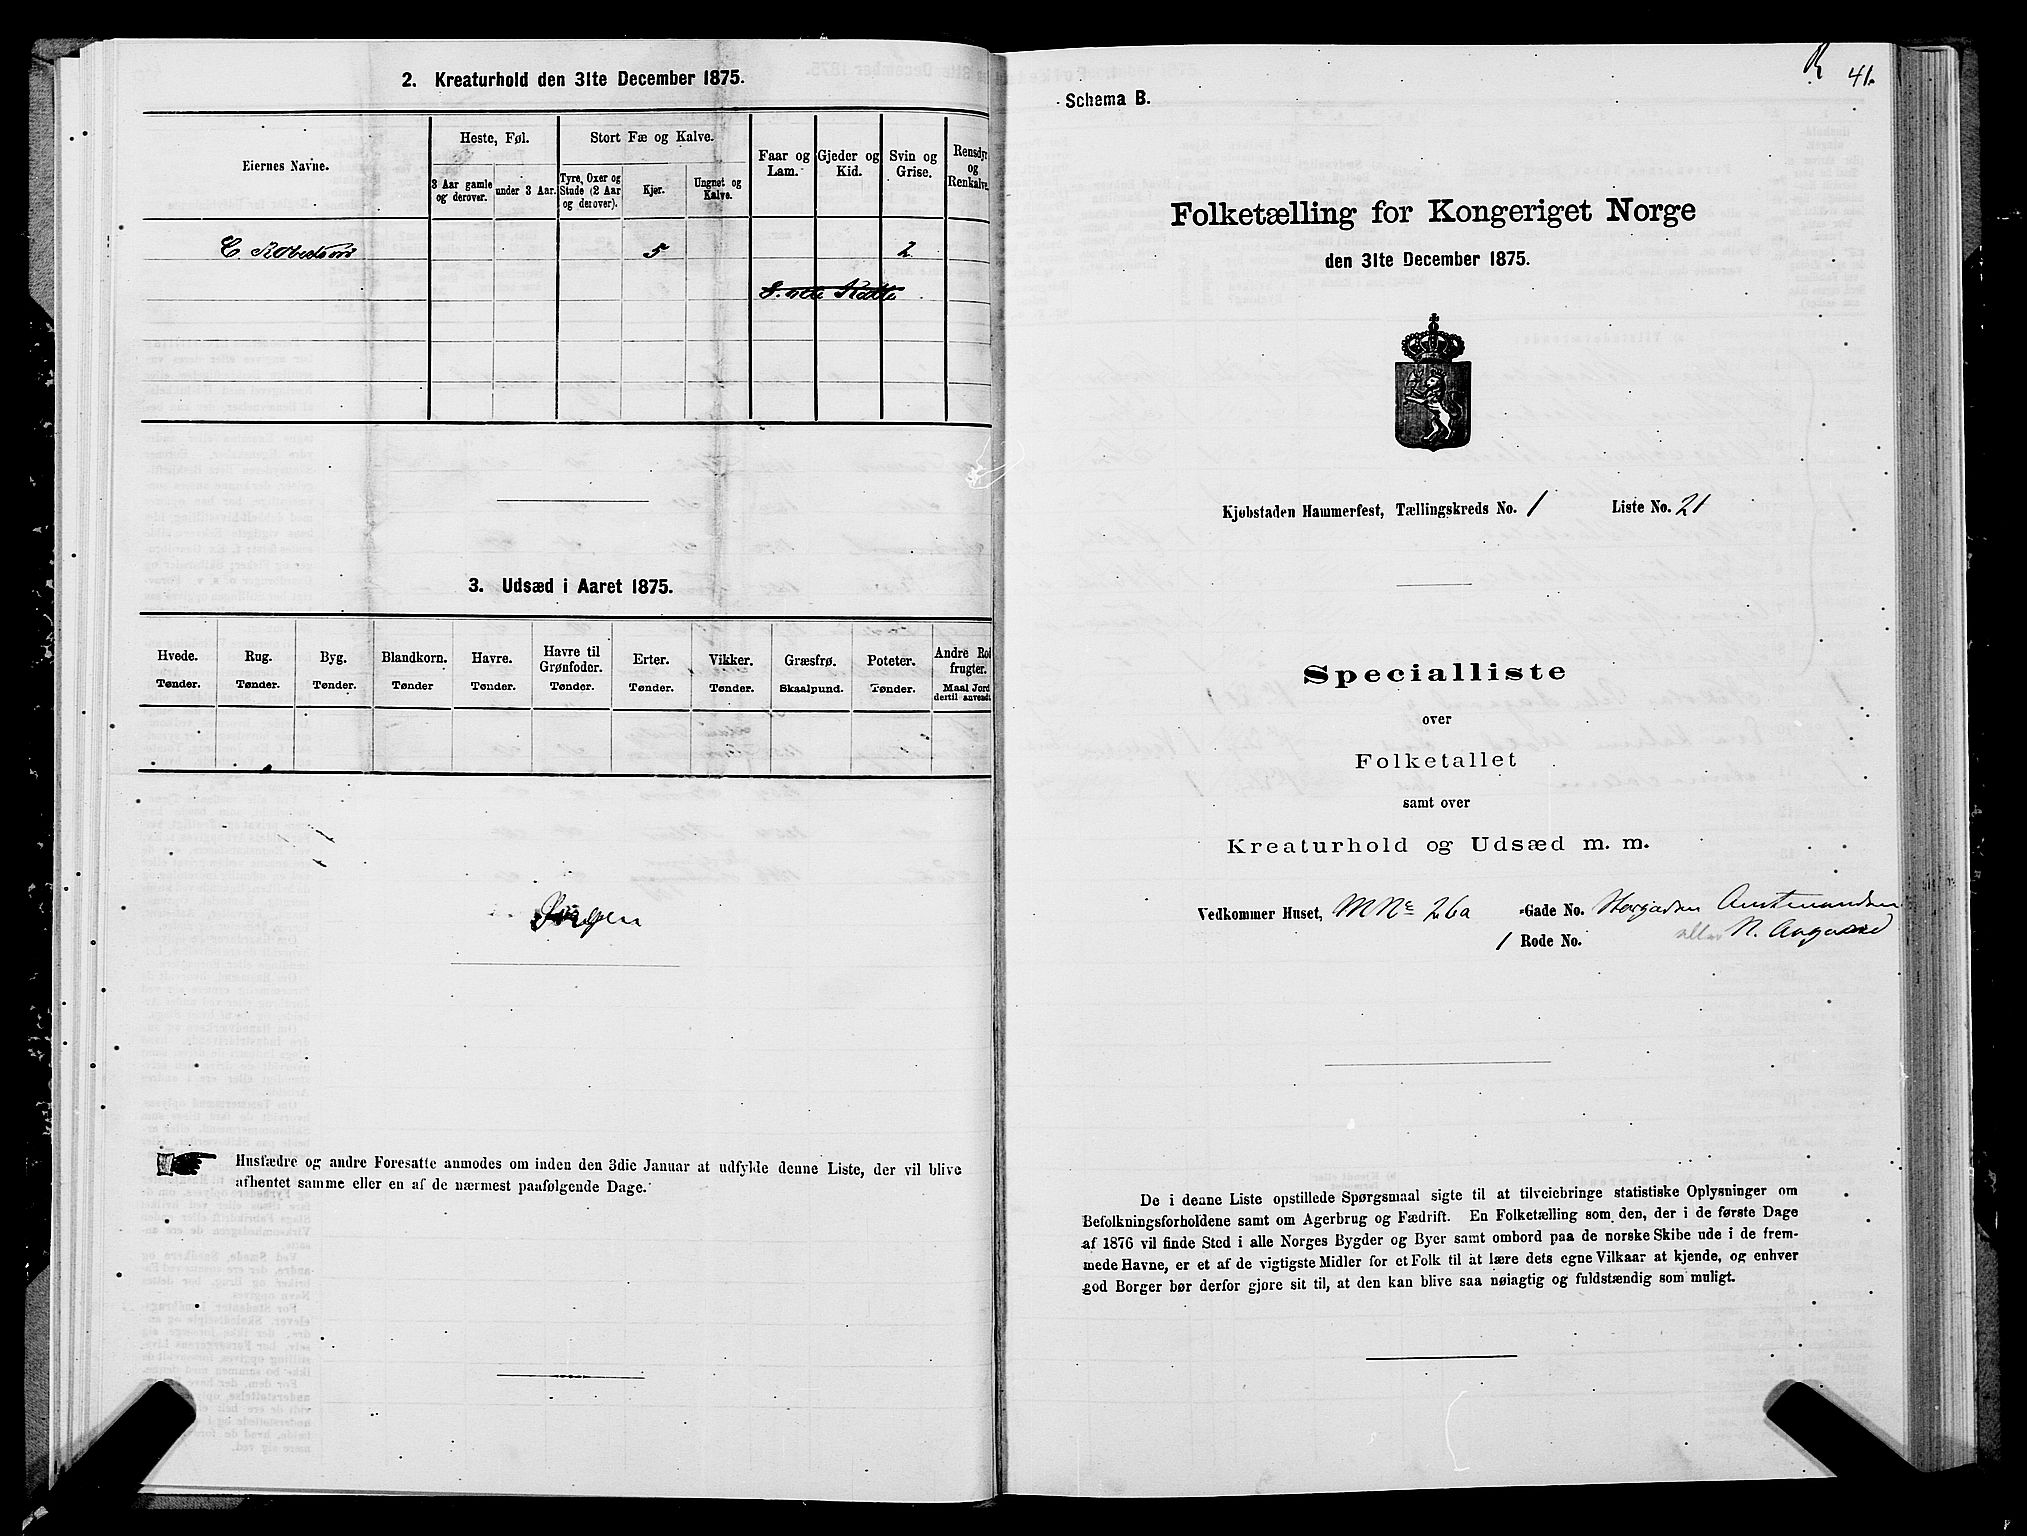 2. Kreaturhold den 31te December 1875.
Eiernes Navne.
Heste, Føl.
Stort Fæ og Kalve.
Faar og Lam.
Gjeder og Kid.
Svin og Grise.
Rensdyr og Renkalve.
3 Aar gamle og derover.
under 3 Aar.
Tyre, Oxer og Stude (2 Aar og derover).
Kjør.
Ungnøt og Kalve.
C. Robertson 5 2
3. Udsæd i Aaret 1875.
Hvede. Rug. Byg. Blandkorn. Havre. Havre til Grønfoder. Erter. Vikker. Græsfrø. Poteter. Andre Rodfrugter.
Tønder. Tønder. Tønder. Tønder Tønder. Tønder. Tønder. Tønder. Skaalpund. Tønder. Maal Jord dertil anvendt
Ingen
Husfædre og andre Foresatte anmodes om inden den 3die Januar at udfylde denne Liste, der vil blive
afhentet samme eller en af de nærmest paafølgende Dage.
R 41.
Schema B.
Folketælling for Kongeriget Norge
den 31te December 1875.
Kjøbstaden Hammerfest, Tællingskreds No. 1 Liste No. 21
Specialliste
over
Folketallet
samt over
Kreaturhold og Udsæd m. m.
Vedkommer Huset, MNr 26a Gade No. Storgaden
1 Rode No. eller N. Aagaard
De i denne Liste opstillede Spørgsmaal sigte til at tilveiebringe statistiske Oplysninger om
Befolkningsforholdene samt om Agerbrug og Fædrift. En Folketælling som den, der i de første Dage
af 1876 vil finde Sted i alle Norges Bygder og Byer samt ombord paa de norske Skibe ude i de frem-
mede Havne, er et af de vigtigste Midler for et Folk til at lære dets egne Vilkaar at kjende, og enhver
god Borger bør derfor gjøre sit til, at den kan blive saa nøiagtig og fuldstændig som muligt.